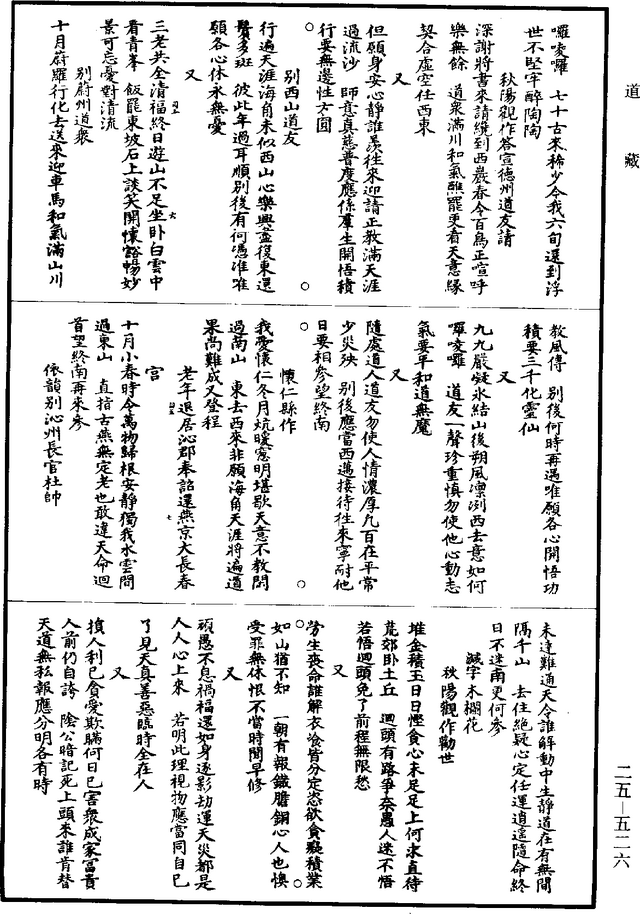 道藏
囉唛囉　七十古來稀少今我六旬還到浮
世不堅牢醉陶陶
秋陽觀作答宣德州道友請
深謝將書來請纔到西巖春令百鳥正喧呼
樂無餘　道衆滿川和氣熙罷更看天意緣
契合虛空任西東
又
但願身安心靜誰羨往來迎請正教滿天涯
過流沙　師意真慈普度應係羣生開悟積
行要無邊性方圓
別西山道友
行遍天涯海角未似西山心樂興盡後東還
鬢多斑　彼此年過耳順別後有何憑准唯
願各心休永無憂
又
三老共全清福終日遊山不足坐卧白雲中
看青峯　飯罷東坡石上談笑開懷豁暢妙
景可忘憂對清流
別蔚州道衆
十月蔚羅行化去送來迎車馬和氣滿山川
教風傳　別後何時再遇唯願各心開悟功
積要三千化靈仙
又
九九嚴凝氷結山後朔風凛冽西去意如何
囉唛囉　道友一聲珍重慎勿使他心動志
氣要平和道無魔
又
隨處道人道友勿使人情濃厚凡百在平常
少災殃　別後應當西邁接待往來寧耐他
日要相參望終南
懷仁縣作
我愛懷仁冬月炕暖窻明堪歇天意不教閑
過南山　東去西來非願海角天涯將遍道
果尚難成又登程
老年退居沁郡奉詔還燕京大長春
宮
十月小春時令萬物歸根安靜獨我水雲間
過東山　直指古燕無定老也敢違天命迴
首望終南再來參
依韻別沁州長官杜帥
未達難通天令誰解動中生靜道在有無間
隔千山　去住絶疑心定任運逍遥隨命終
日不迷南更何參
減字木欄花
秋陽觀作勸世
堆金積玉日日慳貪心未足足上何求直待
荒郊卧土丘　迴頭有路爭奈愚人迷不悟
若悟迴頭免了前程無限愁
又
勞生喪命誰解衣飡皆分定恣欲貪癡積業
如山猶不知　一朝有報鐵膽銅心人也懊
受罪無休恨不當時聞早修
又
頑愚不息禍福還如身逐影劫運天災都是
人人心上來　若明此理視物應當同自已
了見天真善惡臨時全在人
又
損人利已貪愛欺瞞何日已害衆成家富貴
人前仍自誇　陰公暗記死上頭來誰肯替
天道無私報應分明各有時
二五—五二六